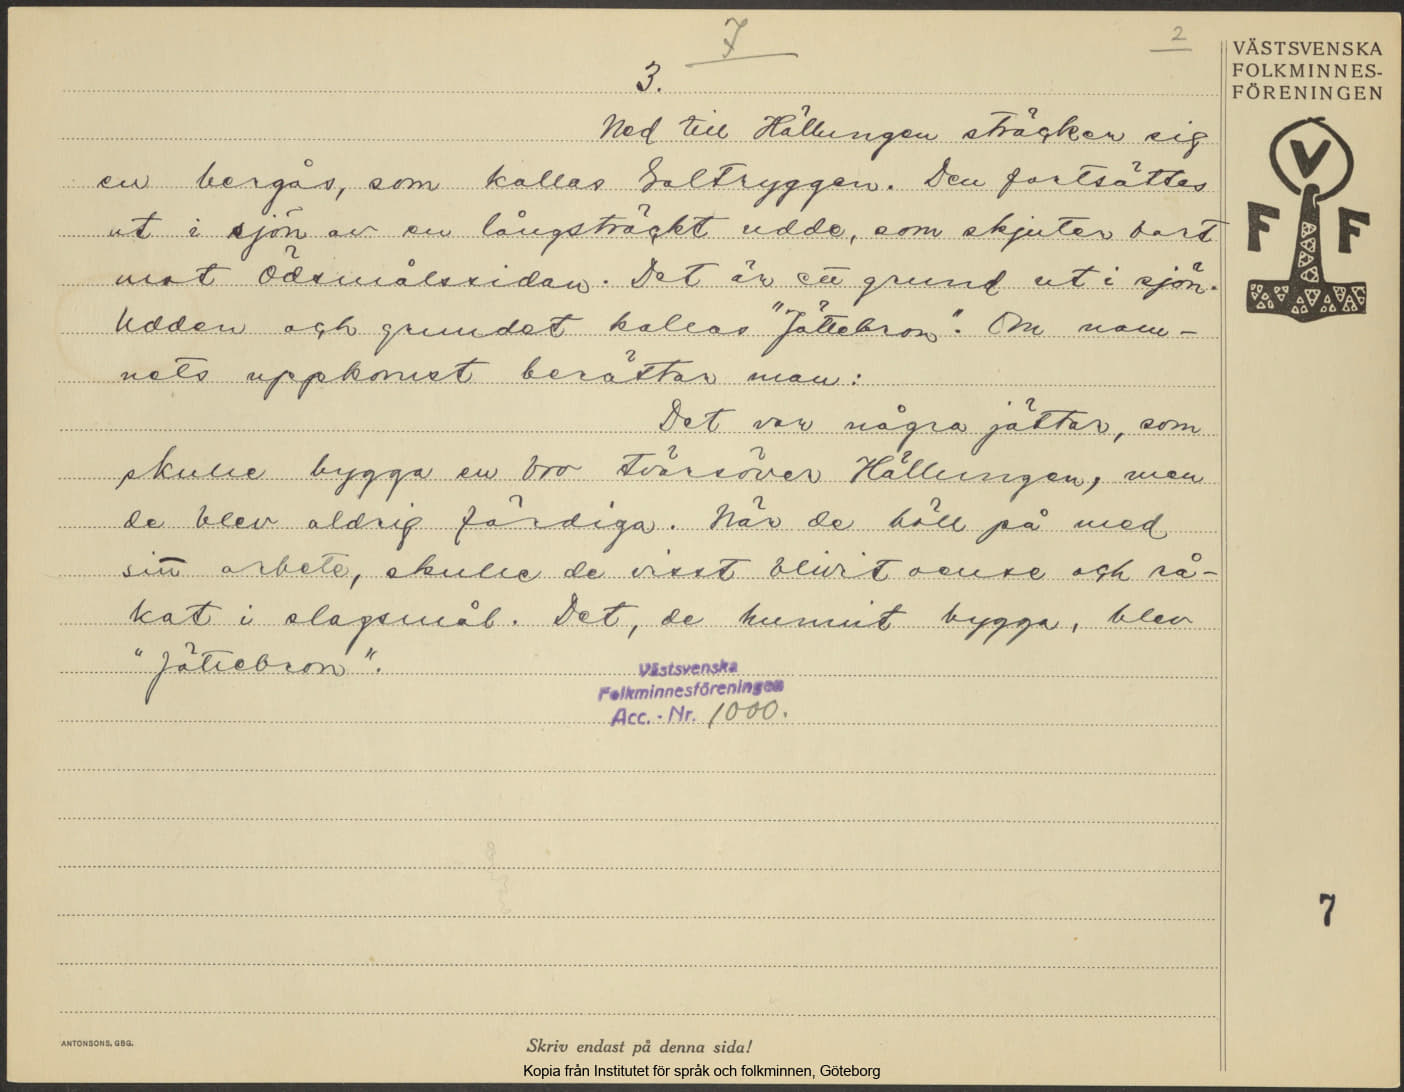 7
2
VÄSTSVENSKA
FOLKMINNES-
FÖRENINGEN
V
F F
3.
Ned till Hällungen sträcker sig
en bergås, som kallas Galtryggen. Den fortsättes
ut i sjön av en långsträckt udde, som skjuter bort
mot Ödsmålssidan. Det är ett grund ut i sjön.
Udden och grundet kallas "Jättebron". Om nam-
nets uppkomst berättar man:
Det var några jättar, som
skulle bygga en bro tvärsöver Hällungen, men
de blev aldrig färdiga. När de höll på med
sitt arbete, skulle de visst blivit oense och rå-
kat i slagsmål. Det, de hunnit bygga, blev
"Jättebron".
Västsvenska
Folkminnesföreningen
Acc. - Nr. 1000.
7
ANTONSONS, GBG.
Skriv endast på denna sida!
Kopia från Institutet för språk och folkminnen, Göteborg